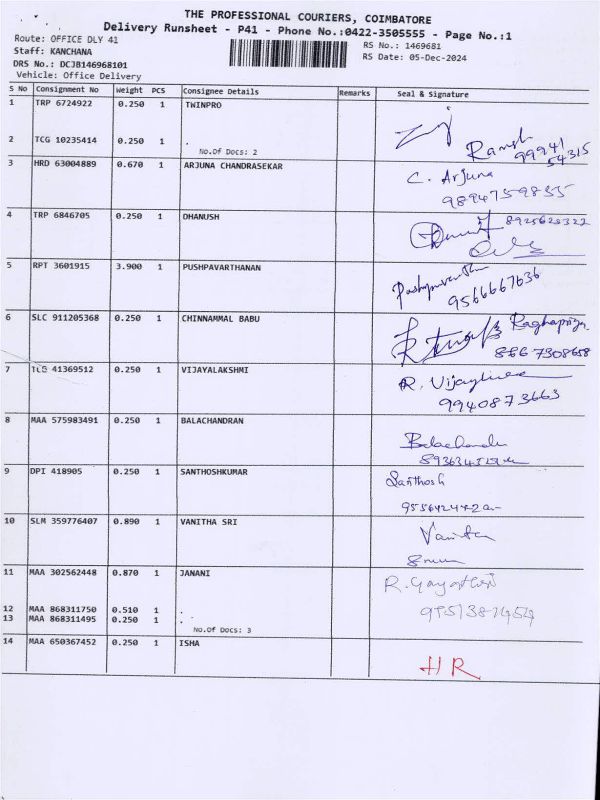 THE PROFESSIONAL COURIERS, COIMBATORE
Delivery Runsheet - P41 - Phone No.:0422-3505555 - Page No.:1
Route: OFFICE DLY 41
RS No.: 1469681
Staff: KANCHANA
RS Date: 05-Dec-2024
DRS No.: DCJB146968101
Vehicle: Office Delivery
S No Consignment No Weight PCS Consignee Details Remarks Seal & Signature
1 TRP 6724922 0.250 1 TWINPRO
2 TCG 10235414 0.250 1 .
No.Of Docs: 2
Ramesh
99941
54315
3 HRD 63004889 0.670 1 ARJUNA CHANDRASEKAR
C. Arjuna
9894759835
4 TRP 6846705 0.250 1 DHANUSH
5 RPT 3601915 3.900 1 PUSHPAVARTHANAN
9566667636
6 SLC 911205368 0.250 1 CHINNAMMAL BABU
Raghapriya
8667308658
7 41369512 0.250 1 VIJAYALAKSHMI
R. Vijay
9940873663
8 MAA 575983491 0.250 1 BALACHANDRAN
9 DPI 418905 0.250 1 SANTHOSHKUMAR
Santhosh
10 SLM 359776407 0.890 1 VANITHA SRI
11 MAA 302562448 0.870 1 JANANI
R. Gayathri
12 MAA 868311750 0.510 1 .
13 MAA 868311495 0.250 1 .
No.Of Docs: 3
14 MAA 650367452 0.250 1 ISHA
HR